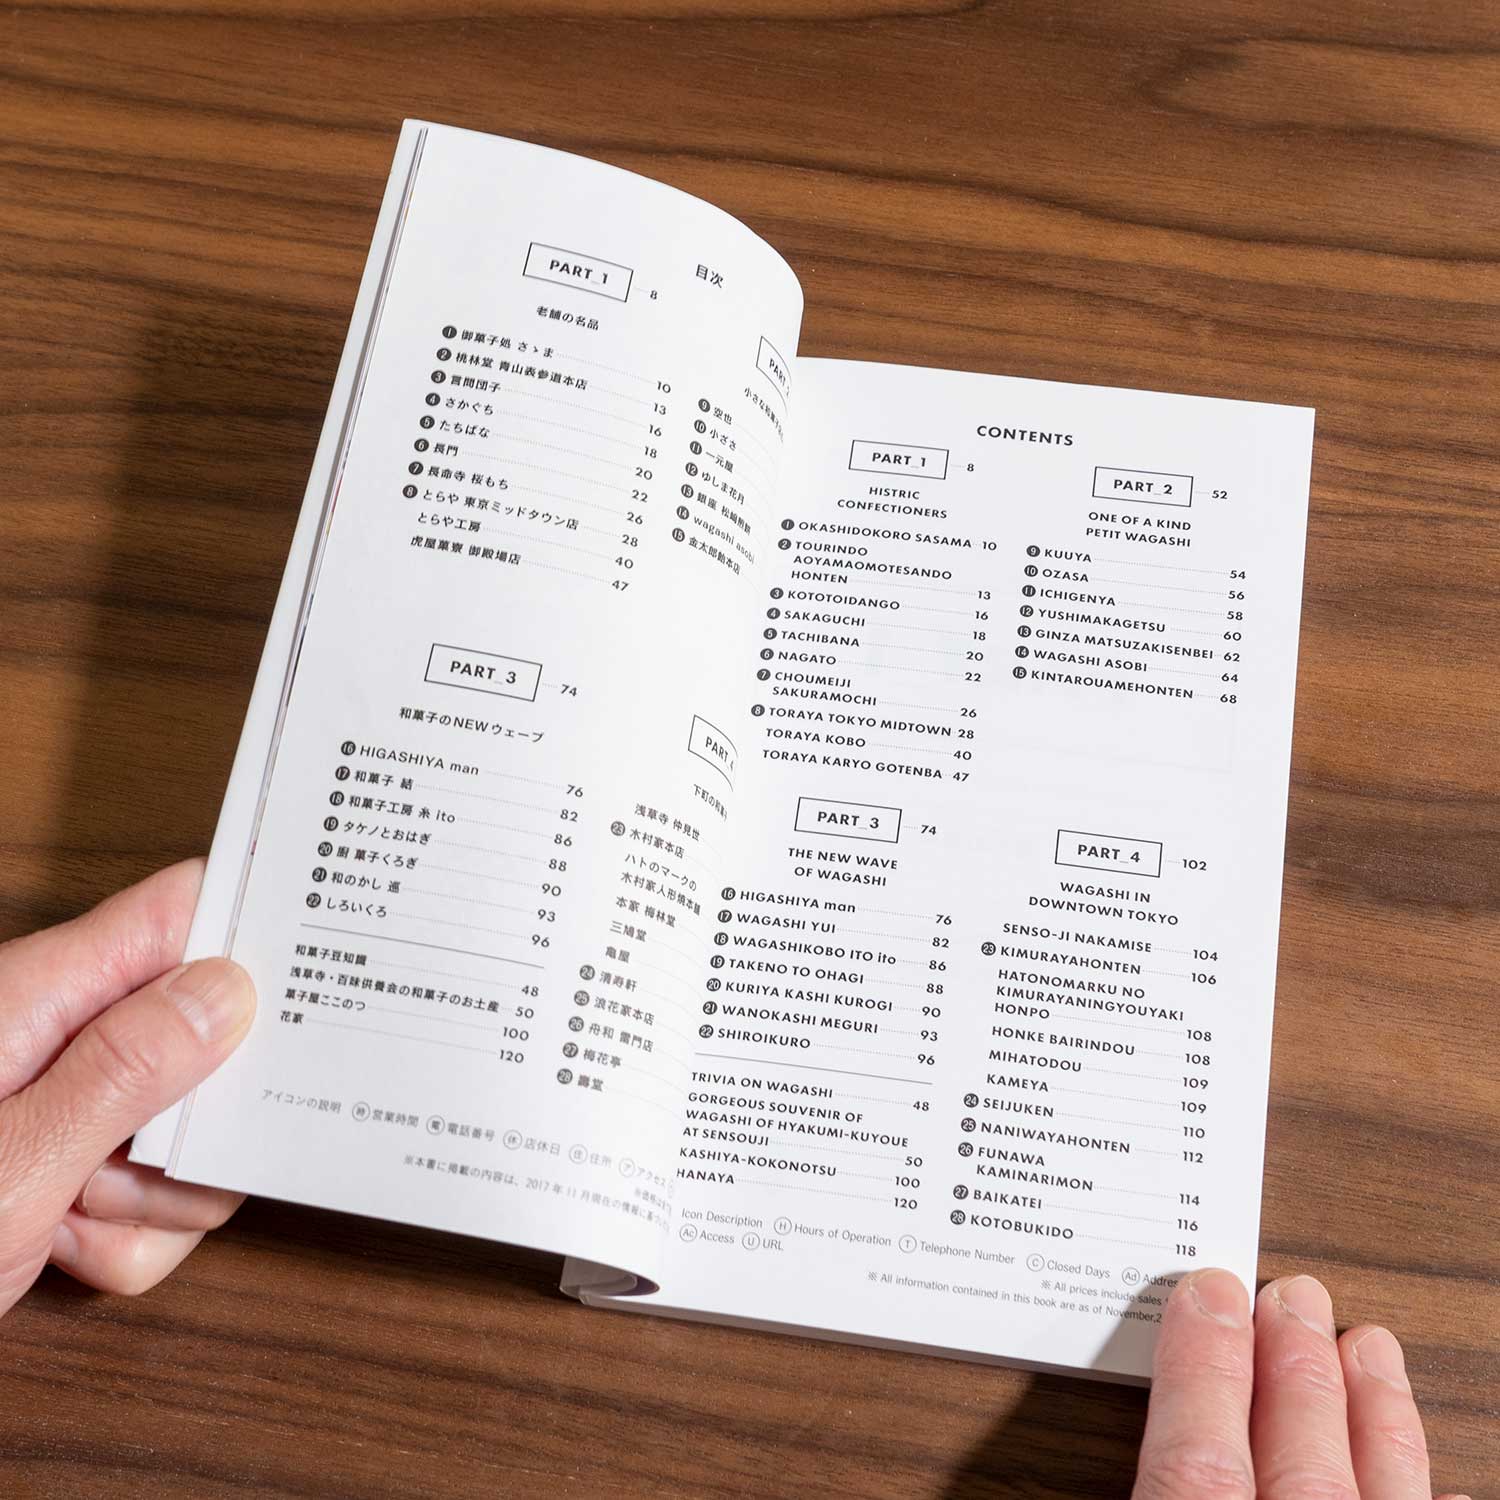 目次
PART_1 8
老舗の名品
1 御菓子処 さゝま 10
2 桃林堂 青山表参道本店 13
3 言問団子 16
4 さかぐち 18
5 たちばな 20
6 長門 22
7 長命寺 桜もち 26
8 とらや 東京ミッドタウン店 28
とらや工房 40
虎屋菓寮 御殿場店 47
PART_2
小さな和菓子
9 空也
10 小ざさ
11 一元屋
12 ゆしま花月
13 銀座 松﨑煎餅
14 wagashi asobi
15 金太郎飴本店
PART_3 74
和菓子のNEWウェーブ
16 HIGASHIYA man 76
17 和菓子 結 82
18 和菓子工房 糸 ito 86
19 タケノとおはぎ 88
20 廚 菓子くろぎ 90
21 和のかし 巡 93
22 しろいくろ 96
和菓子豆知識 48
浅草寺・百味供養会の和菓子のお土産 50
菓子屋ここのつ 100
花家 120
PART_4
下町の和菓
浅草寺 仲見世
23 木村家本店
ハトのマークの
木村家人形焼本舗
本家 梅林堂
三鳩堂
亀屋
24 清寿軒
25 浪花家本店
26 舟和 雷門店
27 梅花亭
28 壽堂
アイコンの説明 時 営業時間 電 電話番号 休 店休日 住 住所 ア アクセス
※本書に掲載の内容は、2017年11月現在の情報に基づ
CONTENTS
PART_1 8
HISTRIC
CONFECTIONERS
1 OKASHIDOKORO SASAMA 10
2 TOURINDO
AOYAMAOMOTESANDO
HONTEN 13
3 KOTOTOIDANGO 16
4 SAKAGUCHI 18
5 TACHIBANA 20
6 NAGATO 22
7 CHOUMEIJI
SAKURAMOCHI 26
8 TORAYA TOKYO MIDTOWN 28
TORAYA KOBO 40
TORAYA KARYO GOTENBA 47
PART_2 52
ONE OF A KIND
PETIT WAGASHI
9 KUUYA 54
10 OZASA 56
11 ICHIGENYA 58
12 YUSHIMAKAGETSU 60
13 GINZA MATSUZAKISENBEI 62
14 WAGASHI ASOBI 64
15 KINTAROUAMEHONTEN 68
PART_3 74
THE NEW WAVE
OF WAGASHI
16 HIGASHIYA man 76
17 WAGASHI YUI 82
18 WAGASHIKOBO ITO ito 86
19 TAKENO TO OHAGI 88
20 KURIYA KASHI KUROGI 90
21 WANOKASHI MEGURI 93
22 SHIROIKURO 96
TRIVIA ON WAGASHI 48
GORGEOUS SOUVENIR OF
WAGASHI OF HYAKUMI-KUYOUE
AT SENSOUJI 50
KASHIYA-KOKONOTSU 100
HANAYA 120
PART_4 102
WAGASHI IN
DOWNTOWN TOKYO
SENSO-JI NAKAMISE 104
23 KIMURAYAHONTEN 106
HATONOMARKU NO
KIMURAYANINGYOUYAKI
HONPO 108
HONKE BAIRINDOU 108
MIHATODOU 109
KAMEYA 109
24 SEIJUKEN 110
25 NANIWAYAHONTEN 112
26 FUNAWA
KAMINARIMON 114
27 BAIKATEI 116
28 KOTOBUKIDO 118
Icon Description H Hours of Operation T Telephone Number C Closed Days Ad Addres
Ac Access U URL
※ All prices include sales
※ All information contained in this book are as of November,2